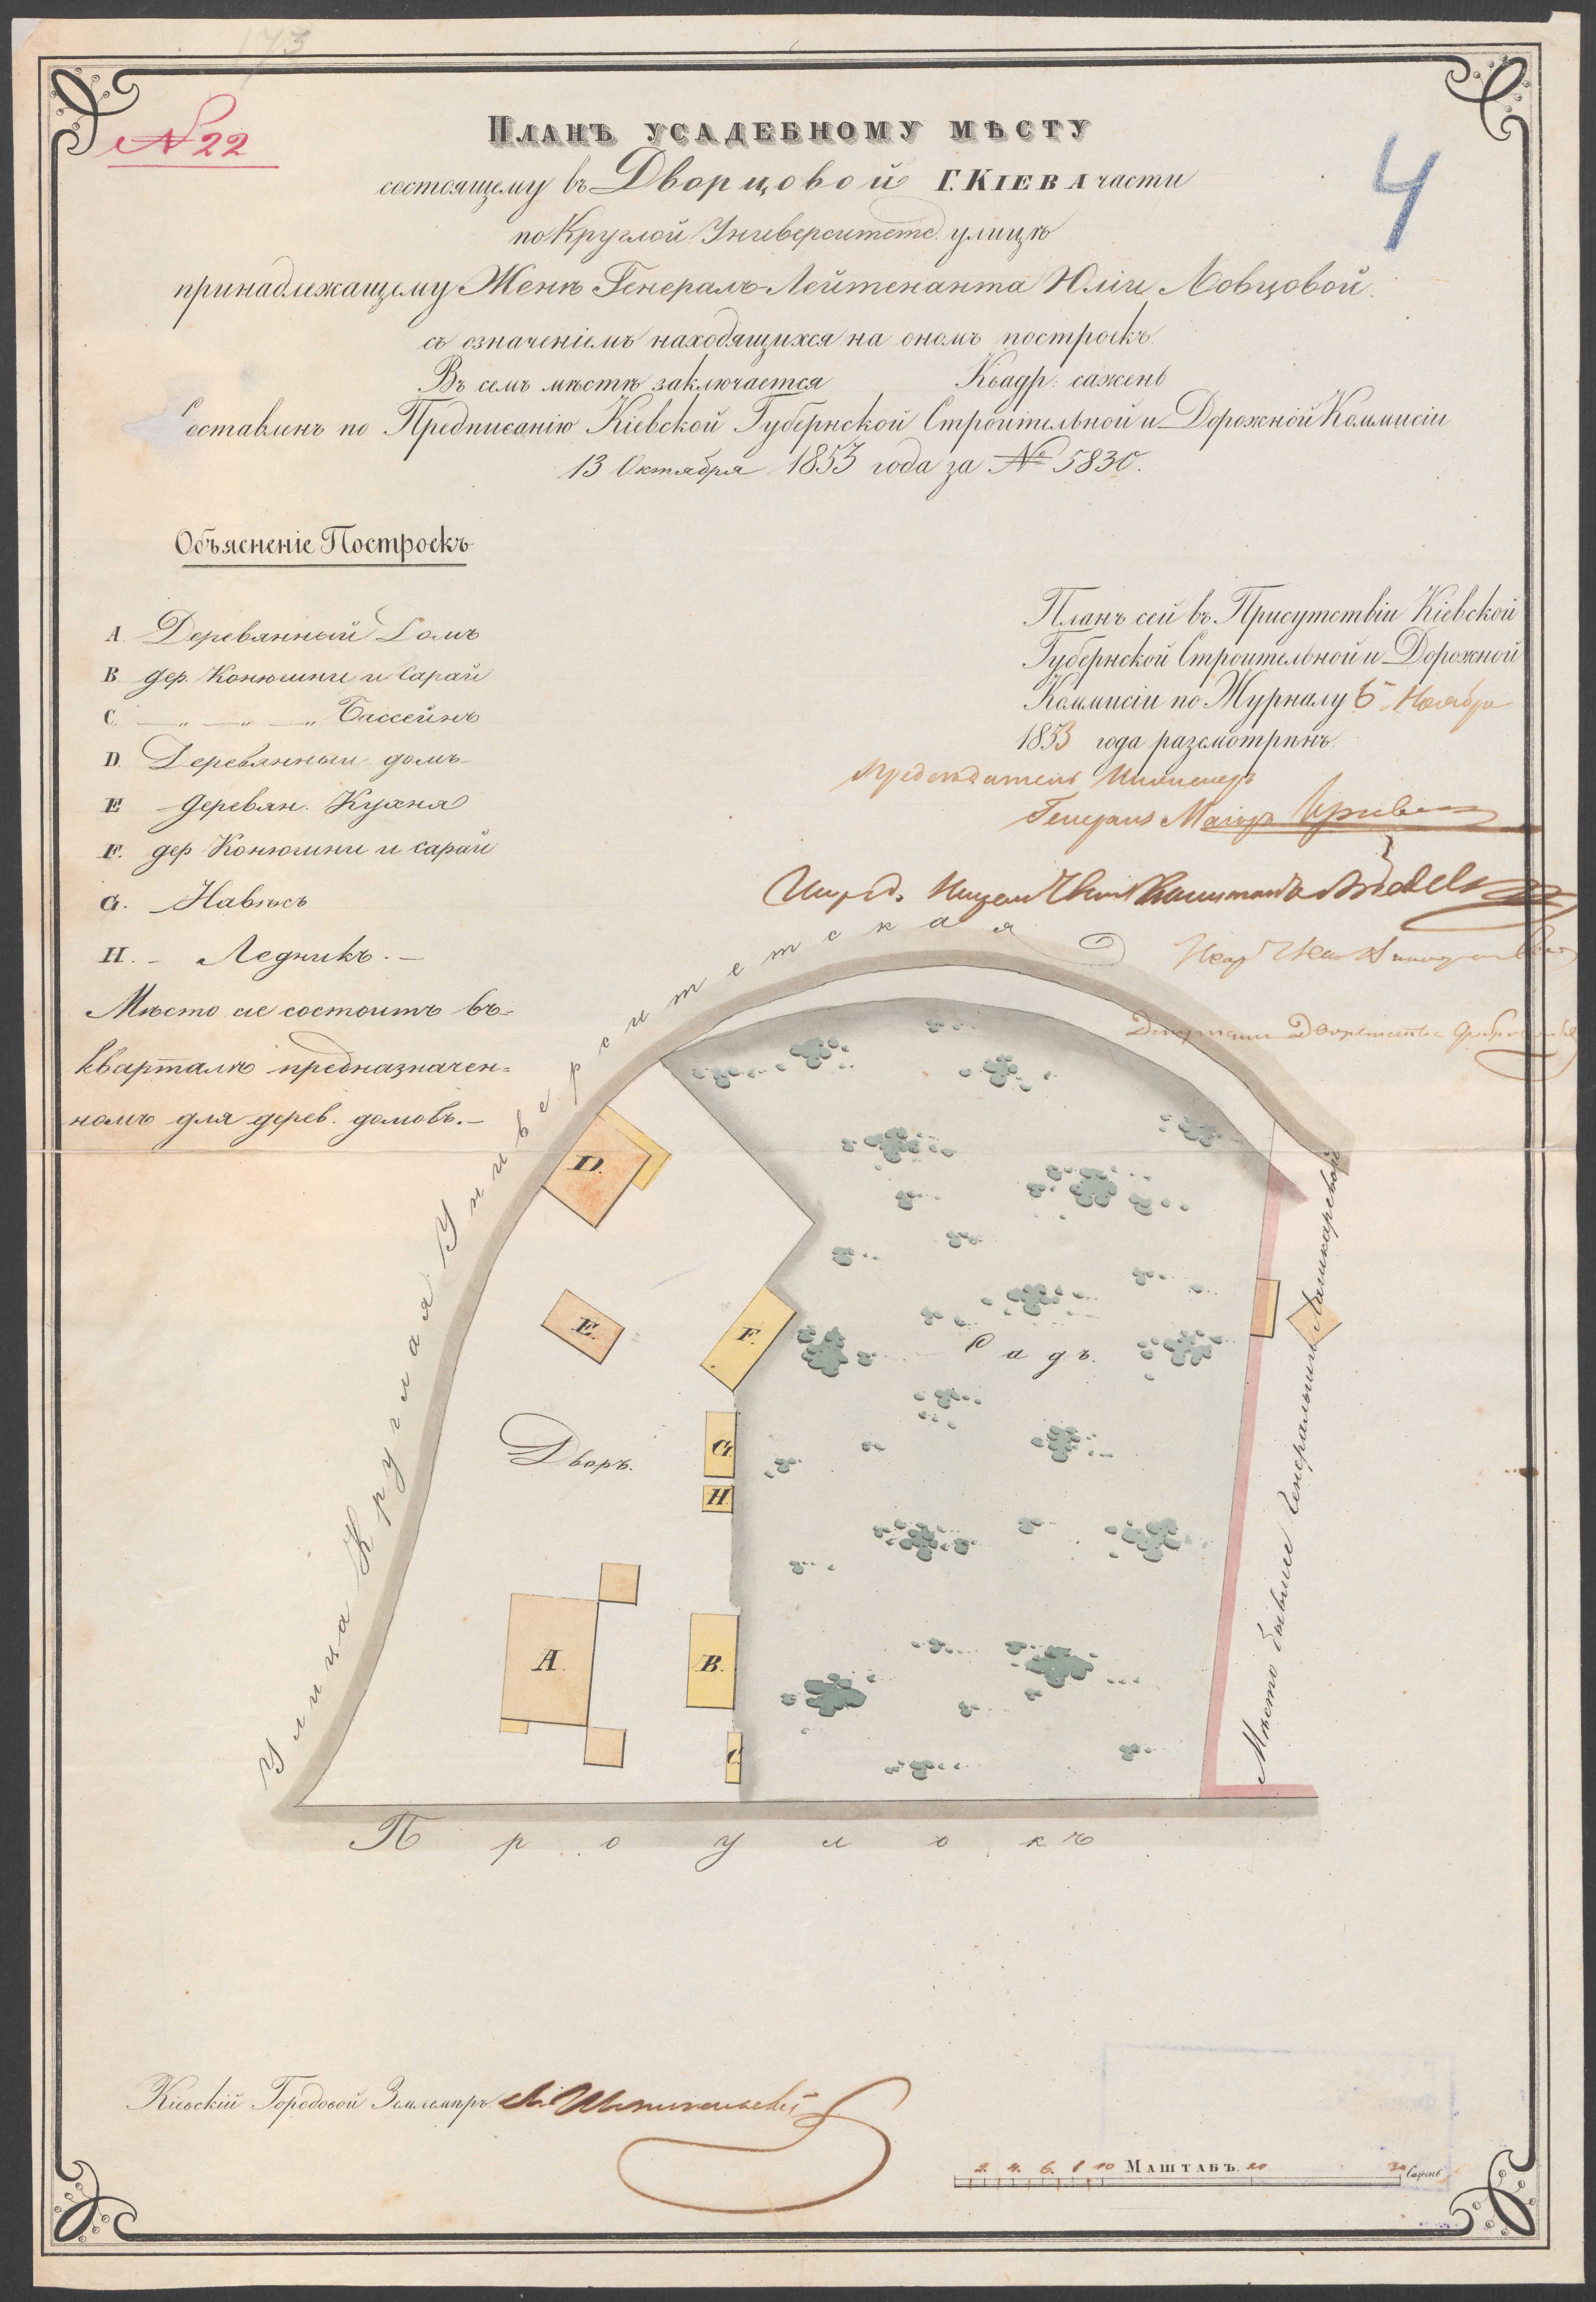 173
№ 22
4
Планъ усадебному мѣсту
состоящему въ Дворцовой Г. Кіева части
по Круглой Университетс. улицѣ
принадлежащему Женѣ Генералъ-Лейтенанта Юліи Ловцовой.
съ означеніемъ находящихся на ономъ построекъ
Въ семъ мѣстѣ заключается Квадр: сажень
Составленъ по Предписанію Кіевской Губернской Строительной и Дорожной Коммисіи
13 Октября 1853 года за № 5830.
Объясненіе Построекъ
A. Деревянный Домъ
B. дер. Конюшни и Сарай
C. — „ — „ — „ Бассейнъ
D. Деревянный домъ
E Деревян. Кухня
F. дер Конюшни и сарай
G. Навѣсъ
H. - Ледникъ. -
Мѣсто сіе состоитъ въ-
кварталѣ предназначен=
номъ для дерев. домовъ. -
Планъ сей въ Присутствіи Кіевской
Губернской Строительной и Дорожной
Коммисіи по Журналу 5 Ноября
1853 года разсмотрѣнъ
Предсѣдатель Инженеръ
Генералъ Маіоръ
Улица Круглая Университетская
D.
E.
F.
G.
H.
A.
B.
C.
Дворъ.
Садъ.
Мѣсто бывшее Генеральши Лашкаревой
Проулокъ
Кіевскій Городовой Землемѣръ
2. 4. 6. 8 10 Маштабъ. 20 30 Сажень